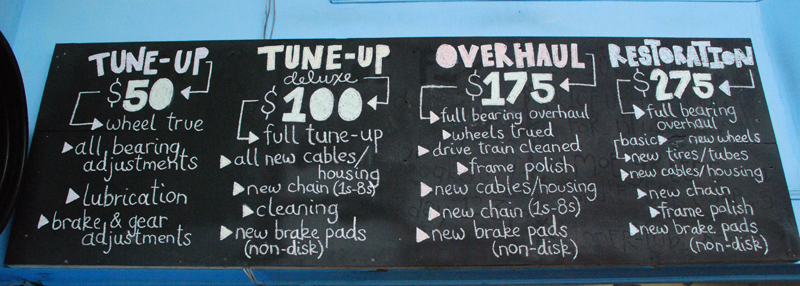 TUNE-UP
$50
wheel true
all bearing
adjustments
lubrication
brake & gear
adjustments
TUNE-UP
deluxe
$100
full tune-up
all new cables/
housing
new chain (1s-8s)
cleaning
new brake pads
(non-disk)
OVERHAUL
$175
full bearing overhaul
wheels trued
drive train cleaned
frame polish
new cables/housing
new chain (1s-8s)
new brake pads
(non-disk)
RESTORATION
$275
full bearing
overhaul
basic new wheels
new tires/tubes
new cables/housing
new chain
frame polish
new brake pads
(non-disk)